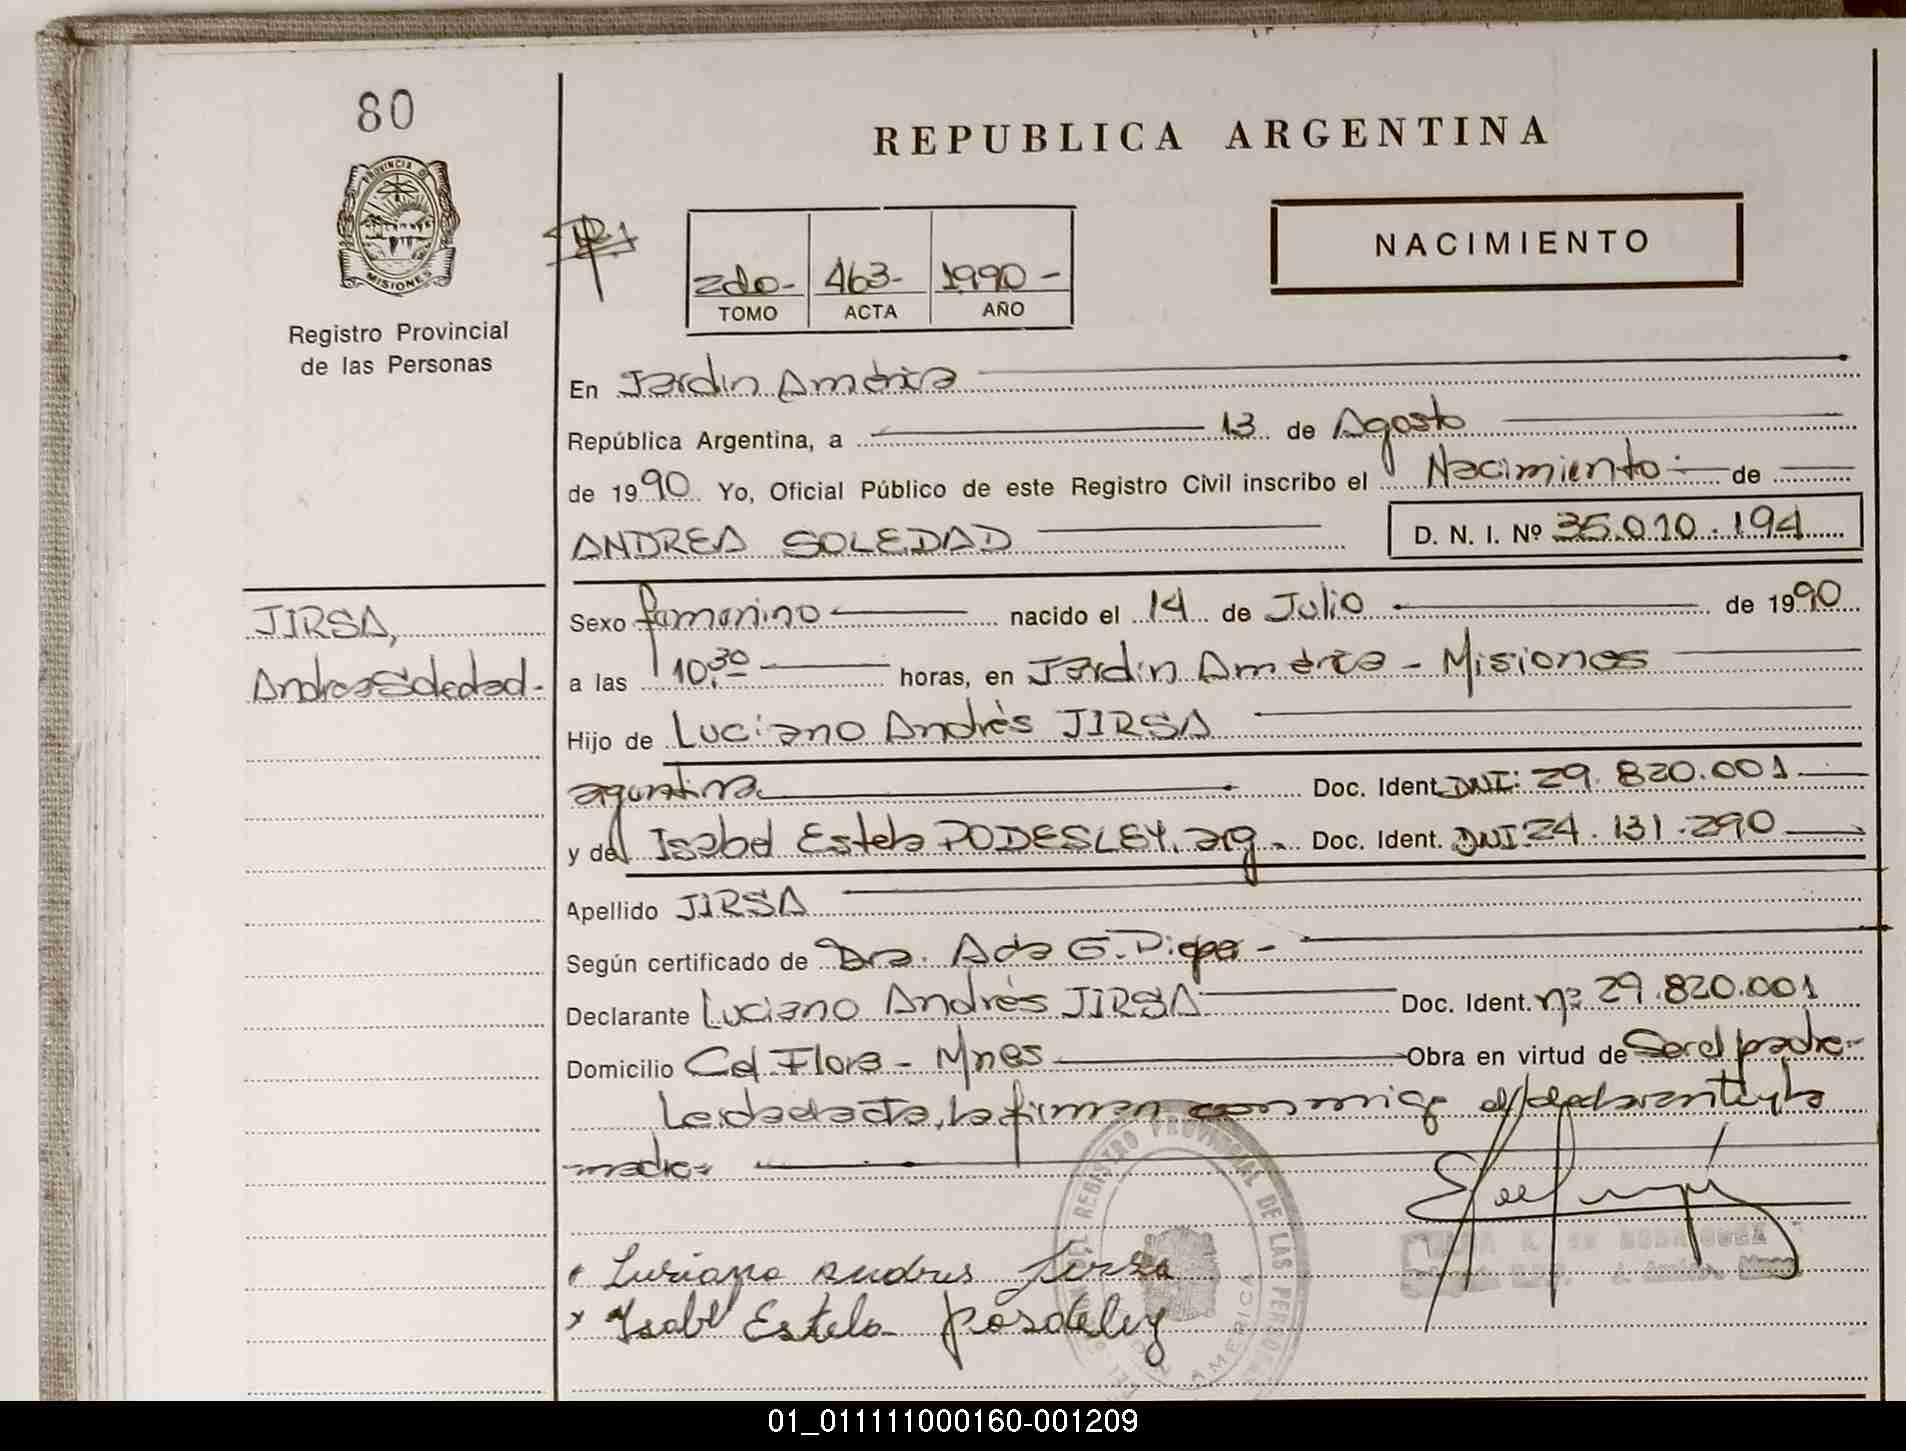 80
PROVINCIA DE
MISIONES
Registro Provincial
de las Personas
REPUBLICA ARGENTINA
NACIMIENTO
2do- 463- 1990-
TOMO ACTA AÑO
En Jardin América
República Argentina, a 13 de Agosto
de 1990 Yo, Oficial Público de este Registro Civil inscribo el Nacimiento de
ANDREA SOLEDAD D. N. I. Nº 35.010.194
JIRSA,
Andrea Soledad-
Sexo femenino nacido el 14 de Julio de 1990
a las 10,30 horas, en Jardin América - Misiones
Hijo de Luciano Andrés JIRSA
argentina Doc. Ident. DNI: 29.820.001
y de Isabel Estela PODESLEY, arg. Doc. Ident. DNI 24.131.290
Apellido JIRSA
Según certificado de Dra. Ada G.
Declarante Luciano Andrés JIRSA Doc. Ident. nº 29.820.001
Domicilio Cel Flora - Mnes Obra en virtud de Ser el padre-
Leida el acta, la firman conmigo el declarante y la
madre
Luciano Andres Jirsa
Isabel Estela Posdeley
REGISTRO PROVINCIAL DE LAS PERSONAS
AMERICA
01_011111000160-001209